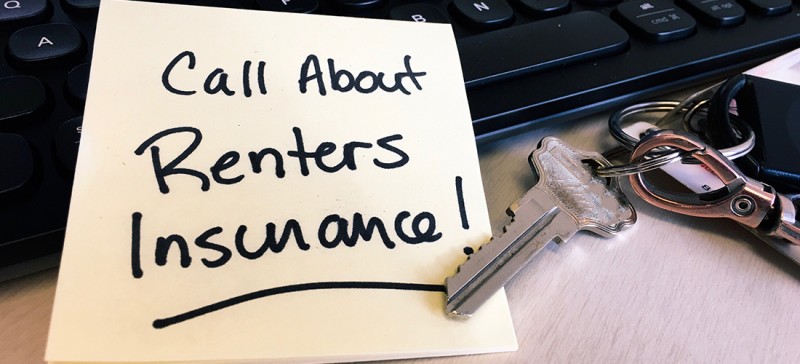 Q
B N cmd ⌘
A
Call About
Renters
Insurance!